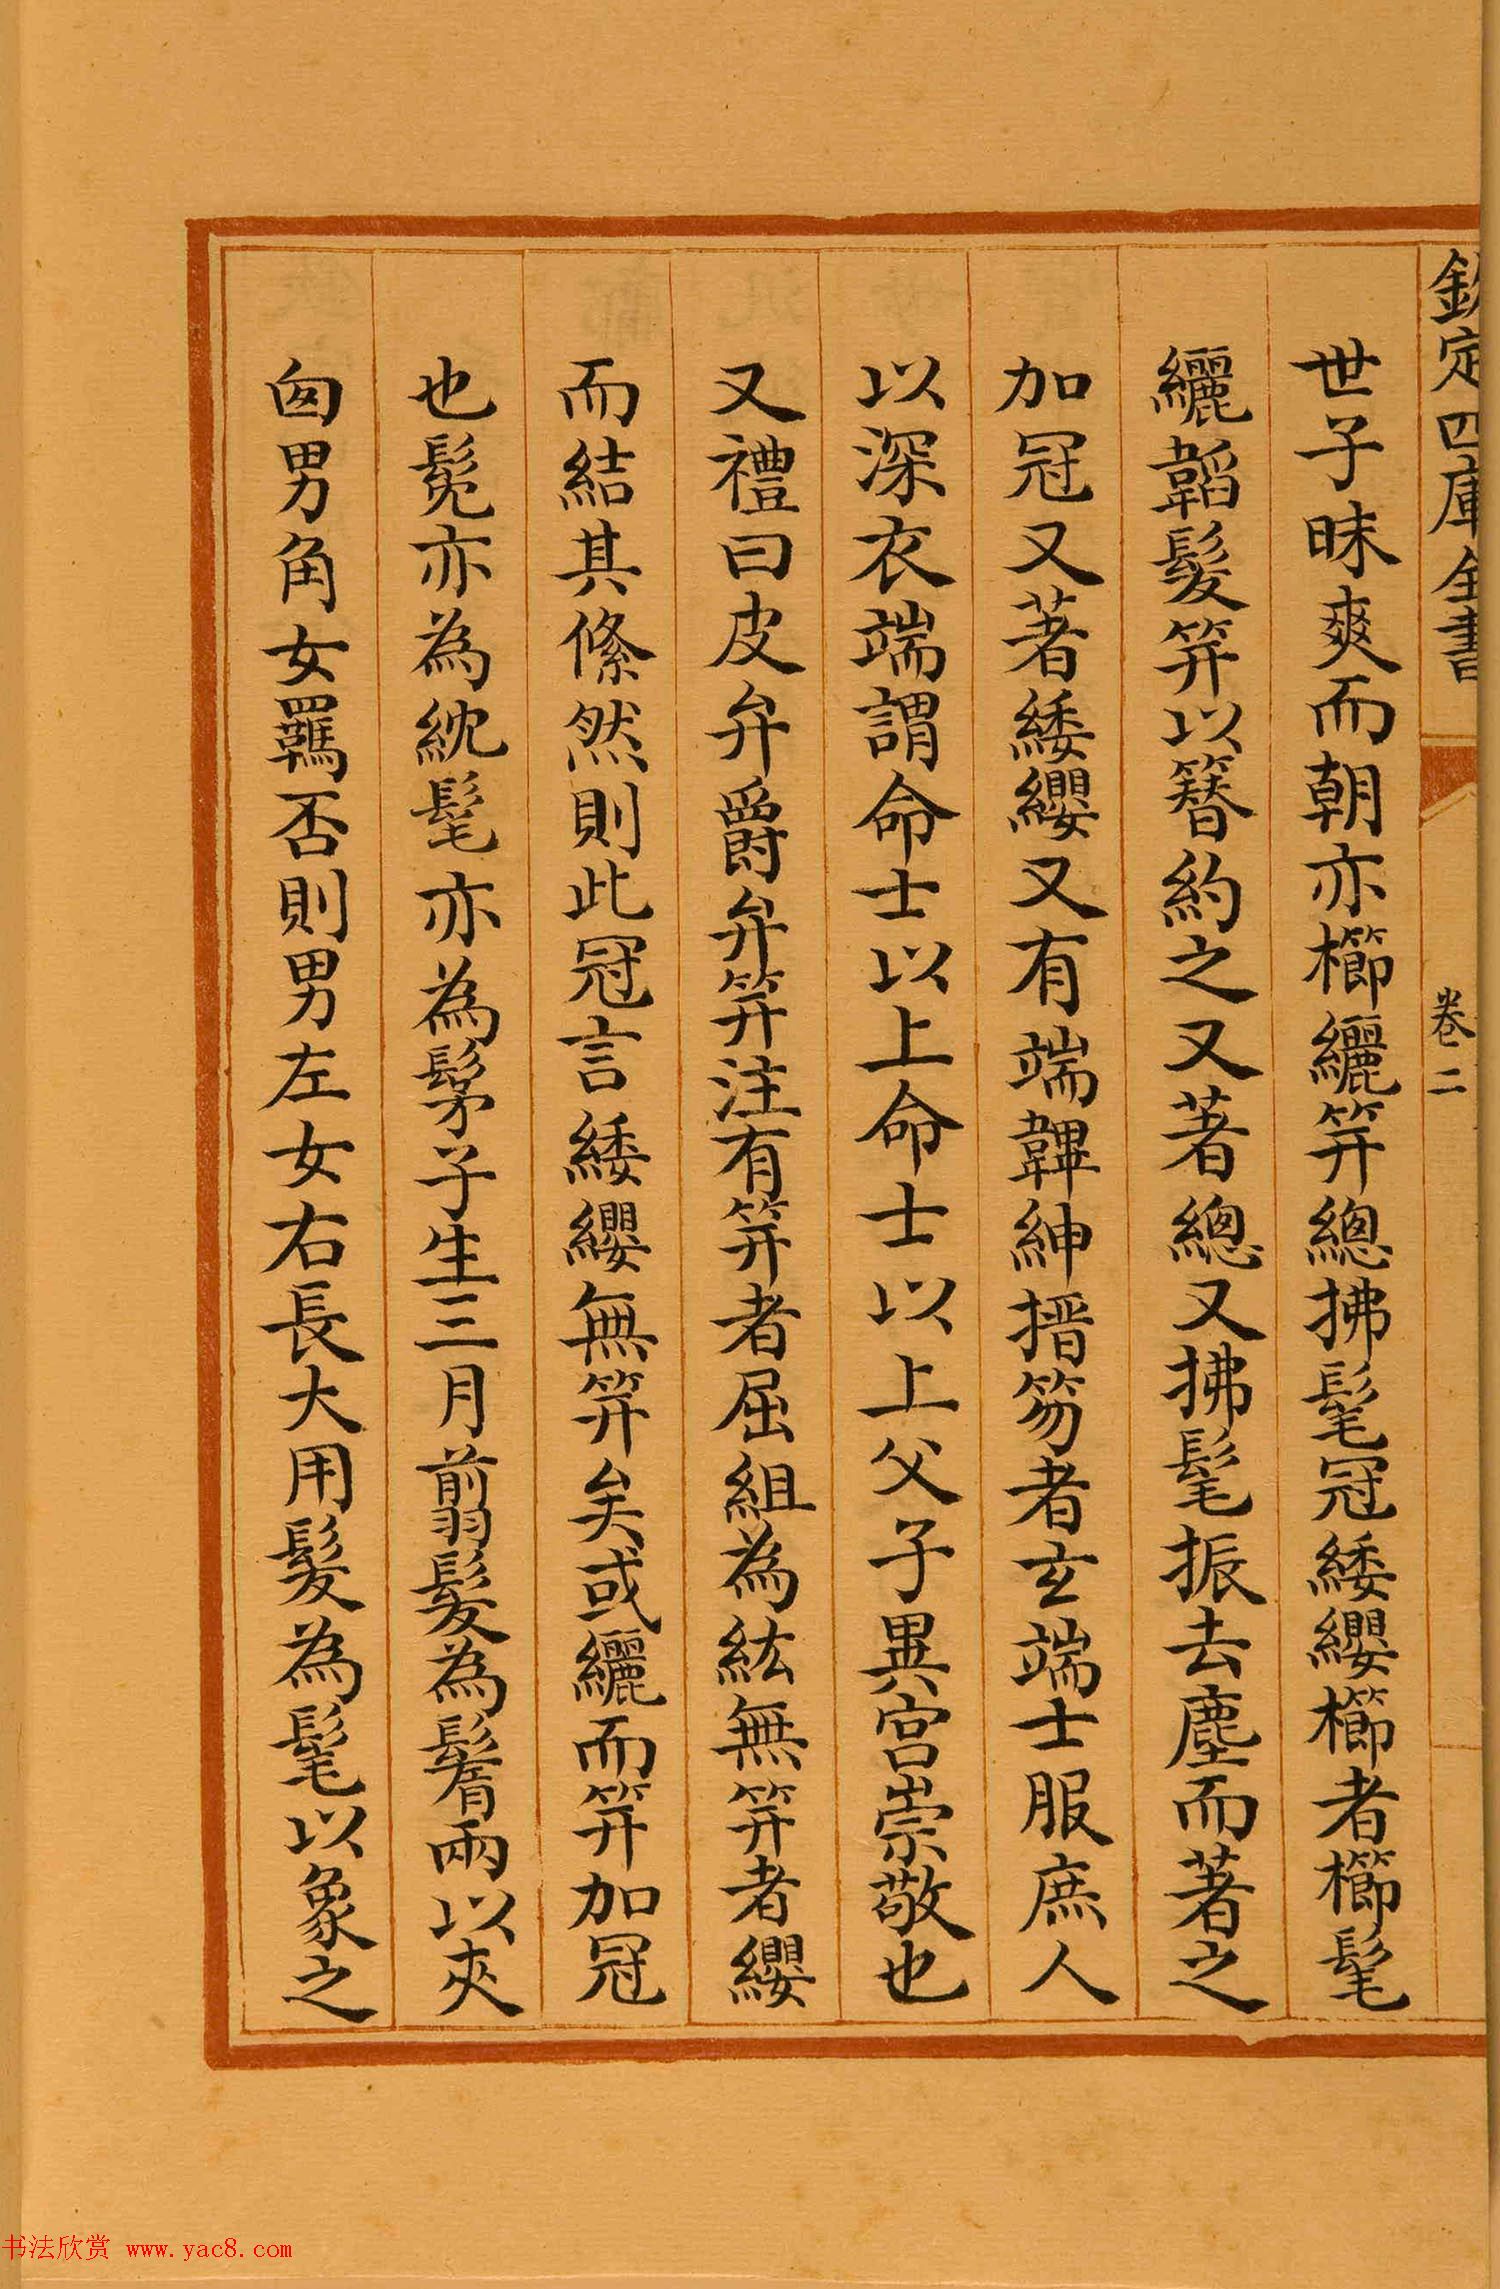 欽定四庫全書
卷二
世子昧爽而朝亦櫛纚笄總拂髦冠緌纓櫛者櫛髦
纚韜髮笄以簪約之又著總又拂髦振去塵而著之
加冠又著緌纓又有端韠紳搢笏者玄端士服庶人
以深衣端謂命士以上命士以上父子異宮崇敬也
又禮曰皮弁爵弁笄注有笄者屈組為紘無笄者纓
而結其絛然則此冠言緌纓無笄矣或纚而笄加冠
也髧亦為紞髦亦為髳子生三月翦髮為鬌兩以夾
囟男角女羈否則男左女右長大用髮為髦以象之
书法欣赏 www.yac8.com